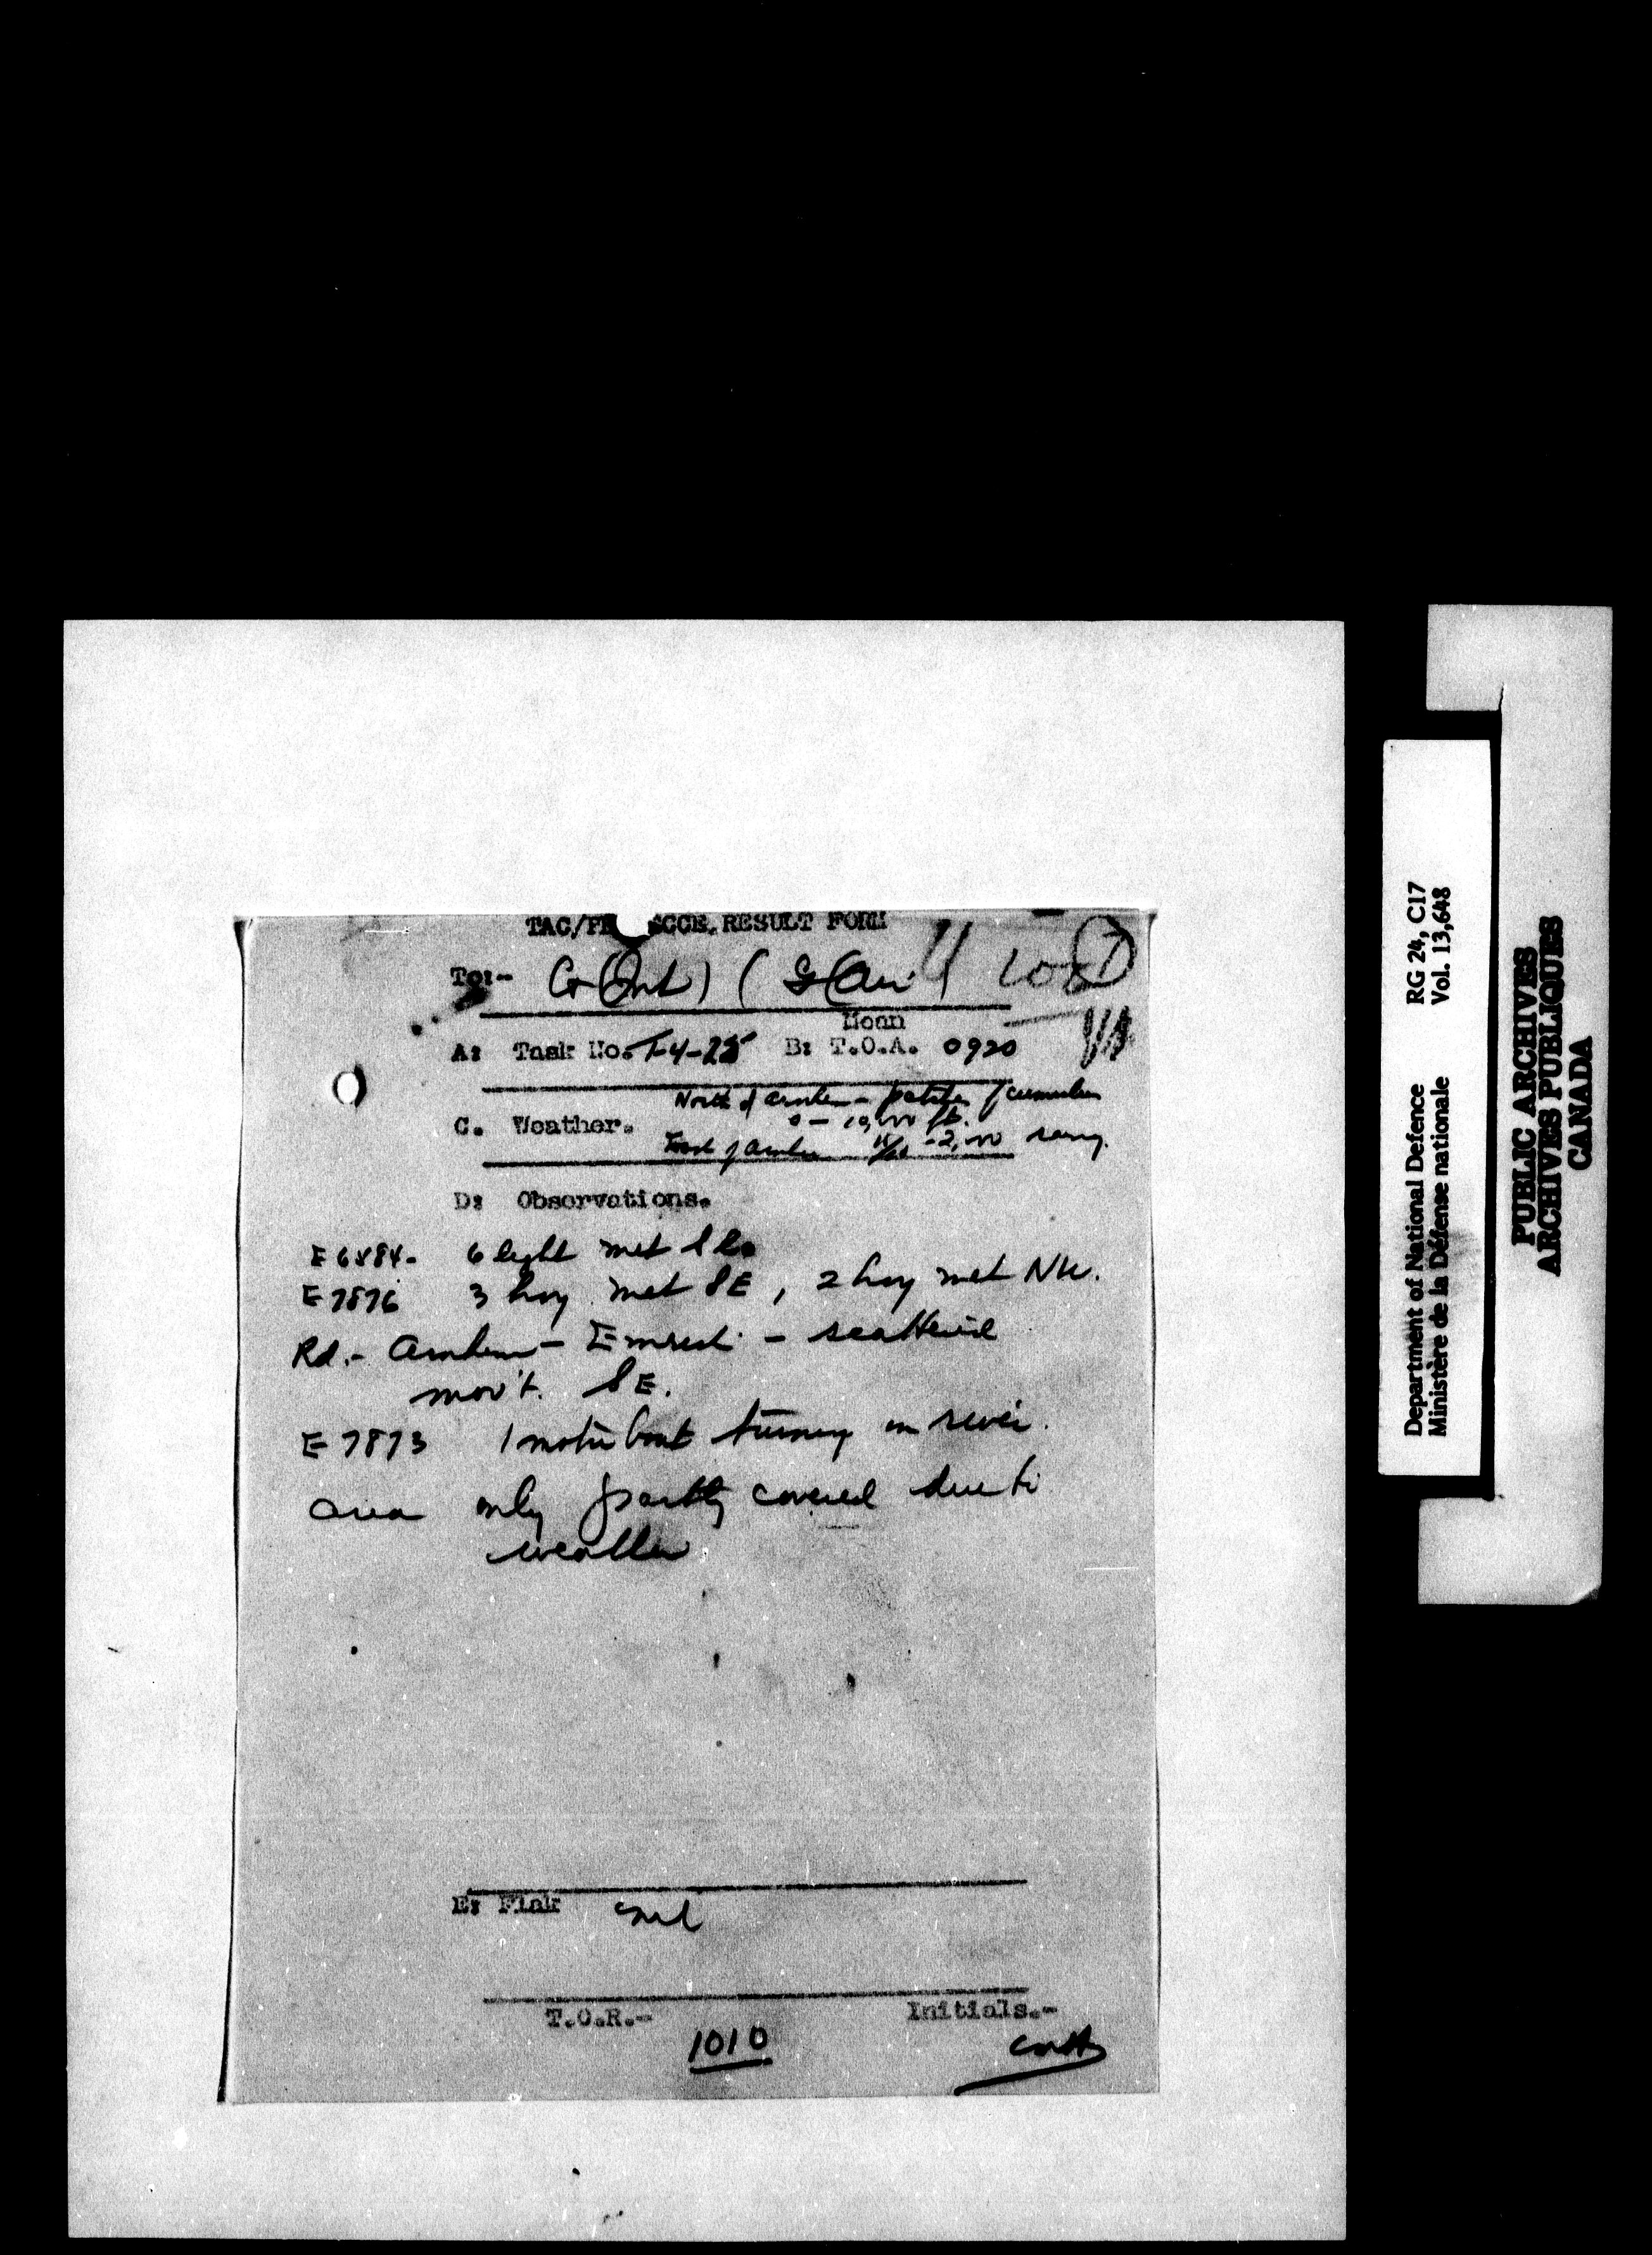 TAC/ RESULT FORM
To:- G(Int) ( G(Air)
Mean
A: Task No. T-4-25 B: T.O.A. 0920
North of Arnhem - patches of cumulus
C. Weather. 0 - 10,000 ft.
East of Arnhem 10/10 - 2,000 rainy.
D: Observations.
6 light met
3 hvy met SE, 2 hvy met NW.
Rd.- Arnhem - - scattered
mov't. SE.
E 7873 1 motor boat turning in river.
area only partly covered due to
weather
E: Flak nil
T.O.R.- Initials.-
1010
Department of National Defence RG 24, C17
Ministère de la Défense nationale Vol. 13,648
PUBLIC ARCHIVES
ARCHIVES PUBLIQUES
CANADA